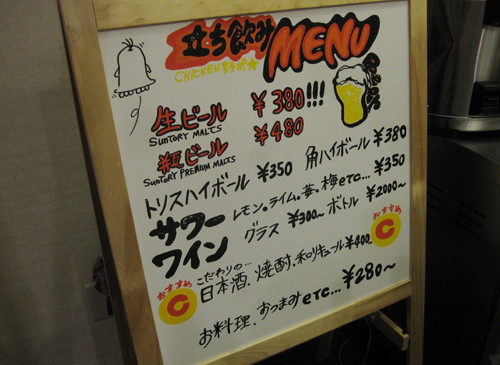 立ち飲み MENU
生ビール ¥380!!!
SUNTORY MALTS
瓶ビール ¥480
SUNTORY PREMIUM MALTS
トリスハイボール ¥350 角ハイボール ¥380
サワー レモン。ライム。苺。梅etc... ¥350
ワイン グラス ¥300~ ボトル ¥2000~
おすすめ
C
こだわりの...
日本酒、焼酎、和リキュール ¥400
おすすめ
C
お料理、おつまみetc... ¥280~